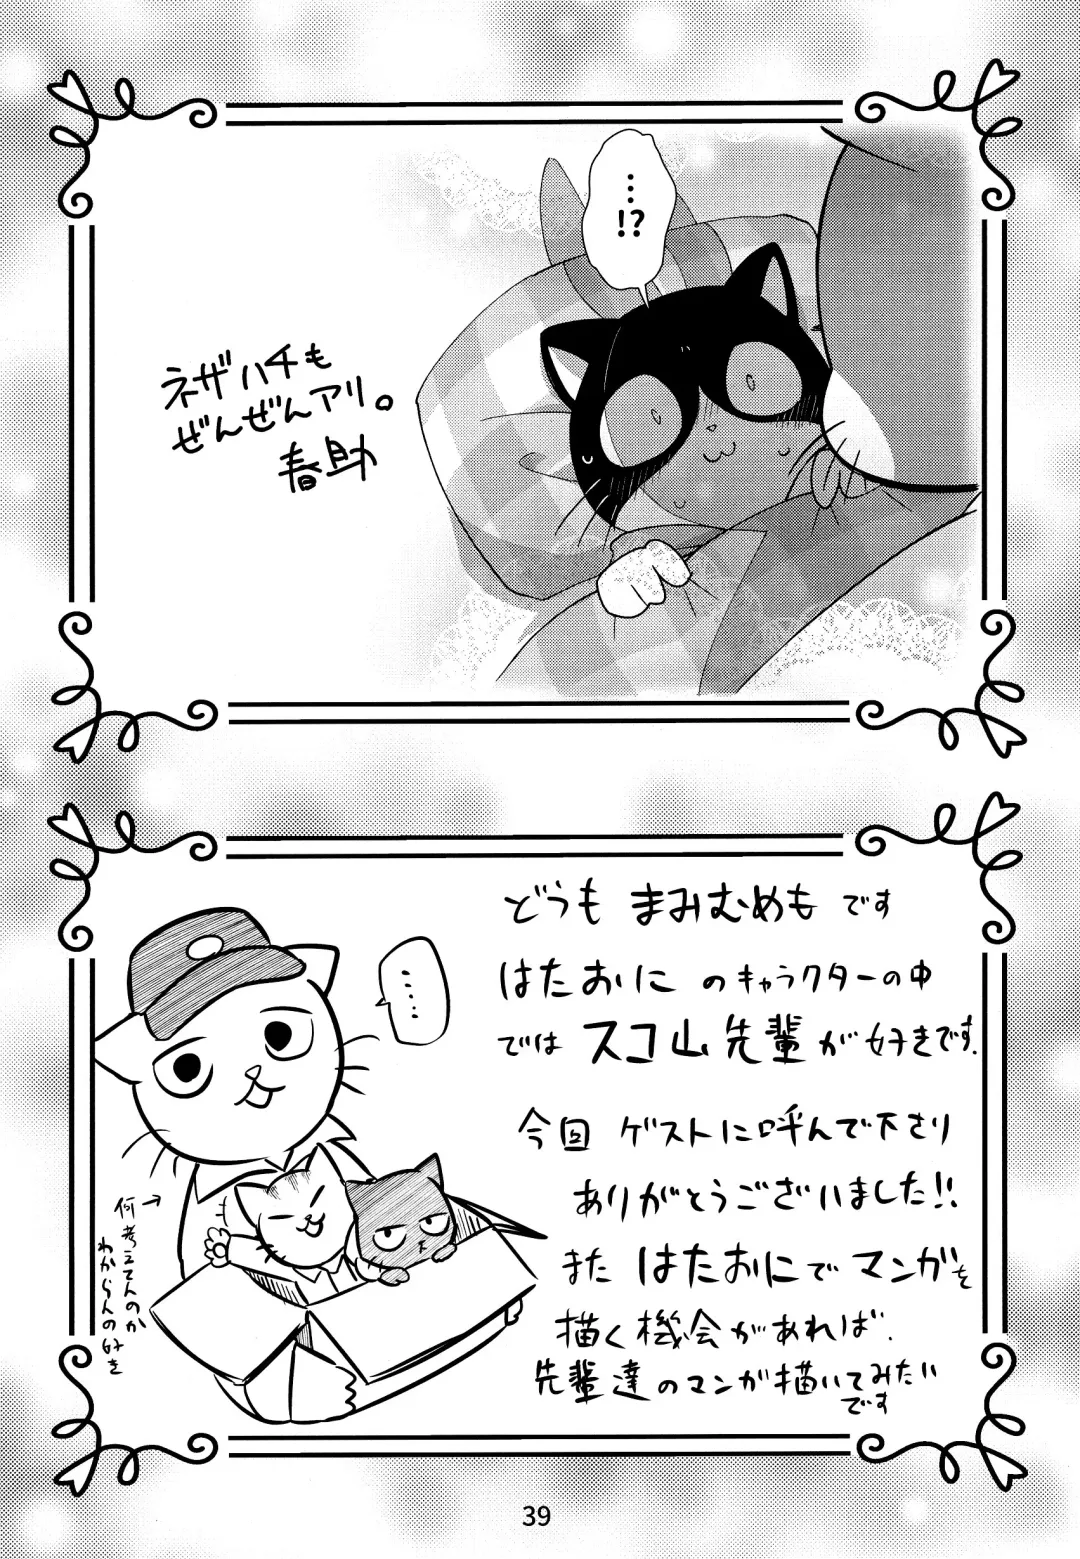 …
!?
ネザハチも
ぜんぜんアリ。
春助
どうも まみむめも です
はたおに のキャラクターの中
では スコ山先輩が好きです.
……
今回 ゲストに呼んで下さり
ありがとうございました!!
また はたおにで マンガを
描く機会があれば、
先輩達のマンガ描いてみたい
です
何考えてんのか
わからんの好き
39